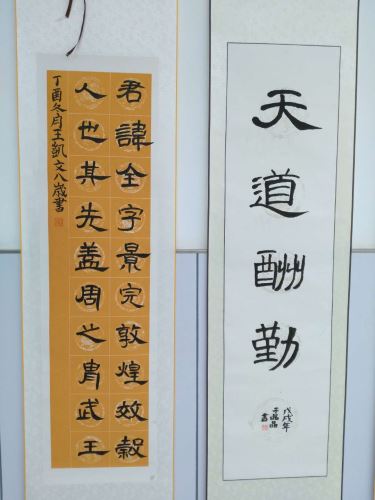 君諱全字景完敦煌效穀
人也其先蓋周之胄武王
丁酉冬月王凱文八歲書
天道酬勤
戊戌年
書